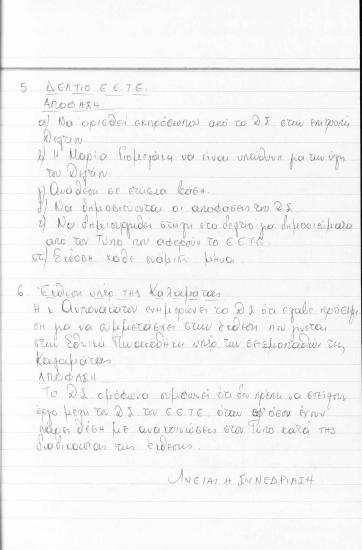 5. ΔΕΛΤΙΟ Ε.Ε.Τ.Ε.
ΑΠΟΦΑΣΗ
α) Να ορισθεί εκπρόσωπος από το Δ.Σ. στην επιτροπή
Δελτίου.
β) Η Μαρία να είναι υπεύθυνη για την ύλη
του Δελτίου
γ) Ανάθεση σε ετήσια βάση.
δ) Να δημοσιεύονται οι αποφάσεις του Δ.Σ.
ε) Να δημιουργηθεί στήλη στο δελτίο για δημοσιεύματα
από τον Τύπο που αφορούν το Ε.Ε.Τ.Ε.
στ) Έκδοση κάθε ενάμιση μήνα.
6. Έκθεση υπέρ της Καλαμάτας
Η κ. ενημερώνει το Δ.Σ. ότι έλαβε πρόσκλη
ση για να συμμετάσχει στην έκθεση που γίνεται
στην Εθνική Πινακοθήκη υπέρ των σεισμοπαθών της
Καλαμάτας.
ΑΠΟΦΑΣΗ
Το Δ.Σ. ομόφωνα συμφωνεί ότι δεν πρέπει να στείλουν
έργο μέλη του Δ.Σ. του Ε.Ε.Τ.Ε. όταν όσοι έχουν
πάρει θέση με ανακοινώσεις στον Τύπο κατά της
διαδικασίας της έκθεσης.
ΛΥΕΤΑΙ Η ΣΥΝΕΔΡΙΑΣΗ